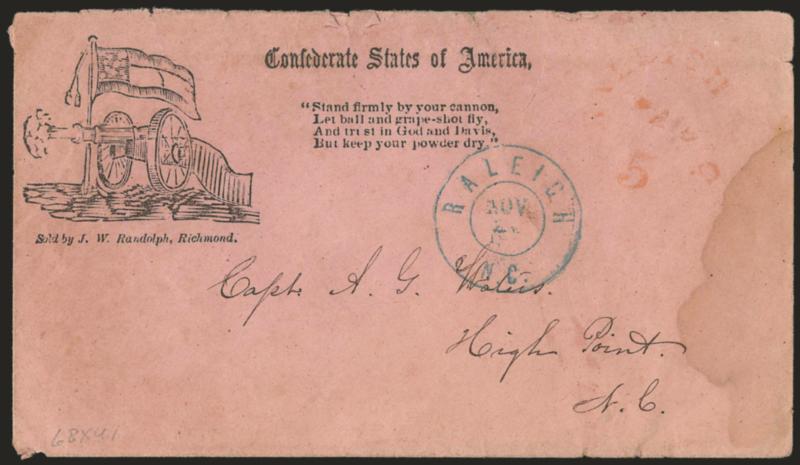 Confederate States of America,
"Stand firmly by your cannon,
Let ball and grape-shot fly,
And trust in God and Davis,
But keep your powder dry."
Sold by J. W. Randolph, Richmond.
PAID
5
RALEIGH
NOV
N.C.
Capt. A. G. Waters.
High Point.
N.C.
68X41